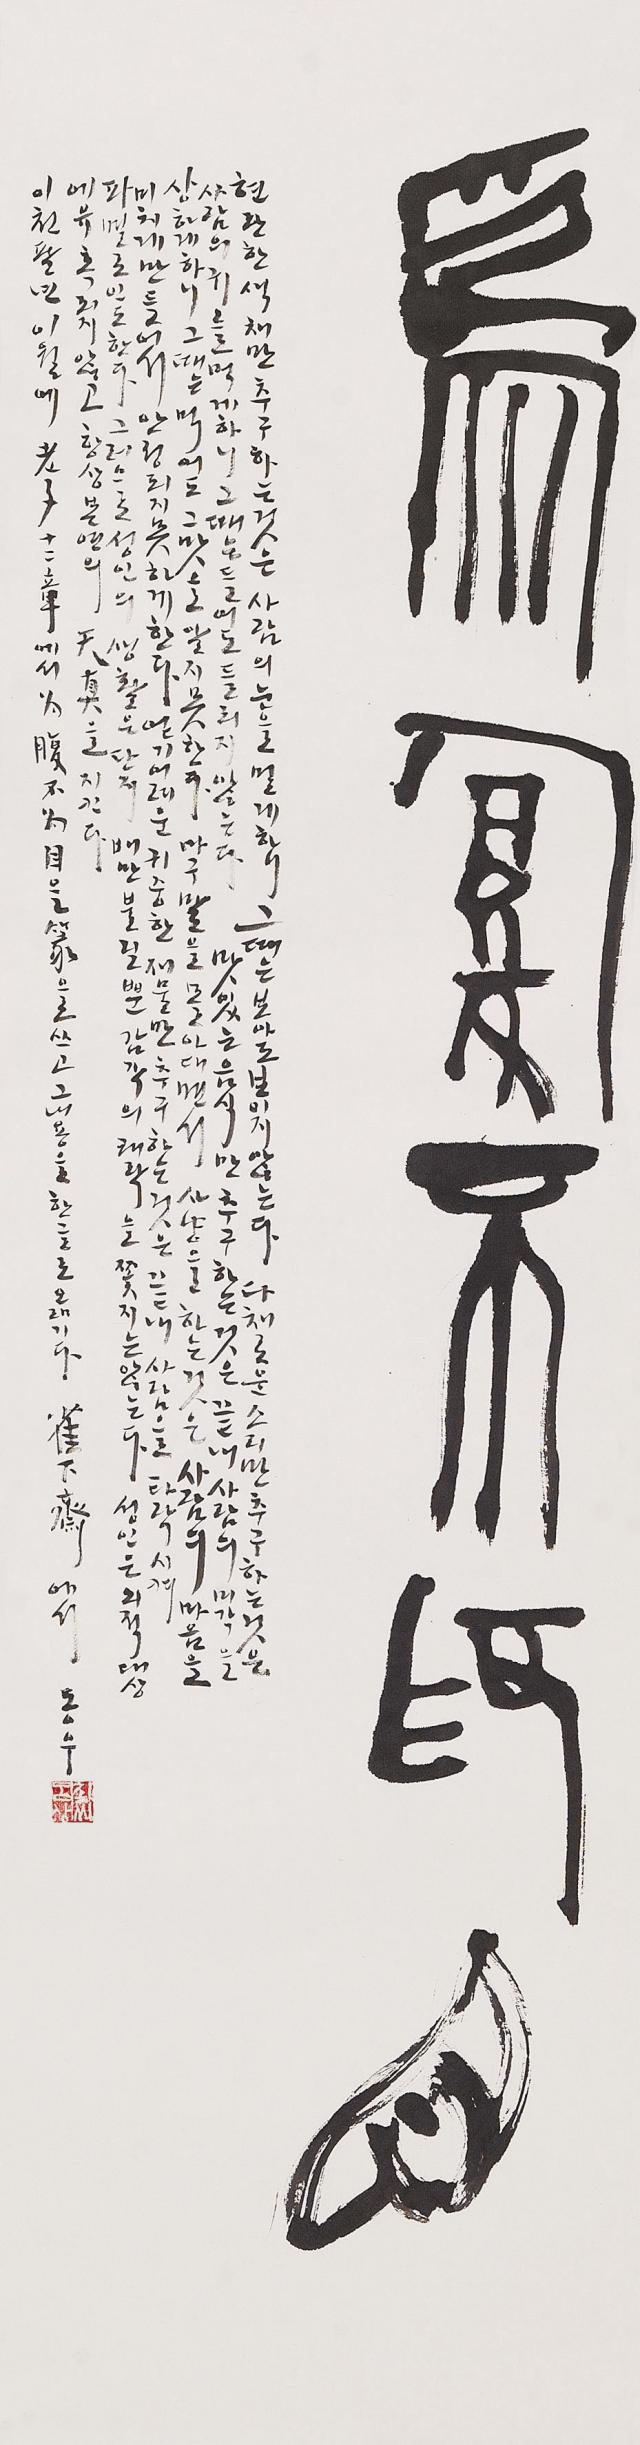 爲腹不爲目
현란한 색채만 추구하는것은 사람의 눈을 멀게하니 그때는 보아도 보이지 않는다 다채로운 소리만 추구하는것은
사람의 귀를 먹게하니 그때는 들어도 들리지 않는다 맛있는 음식만 추구하는것은 끝내 사람의 미각을
상하게하니 그때는 먹어도 그맛을 알지못한다 마구 말을 몰아대면서 사냥을 하는것은 사람의 마음을
미치게 만들어서 안정되지못하게한다 얻기어려운 귀중한 재물만 추구하는것은 끝내 사람을 타락시켜
파멸로 인도한다 그러므로 성인의 생활은 단지 배만 불릴뿐 감각의 쾌락을 쫓지는않는다 성인은 외적대상
에 유혹되지 않고 항상 본연의 天眞을 지킨다
이천팔년 이월에 老子十二章에서 为腹不为目을 篆으로 쓰고 그내용을 한글로 옮기다 下齋에서 동우